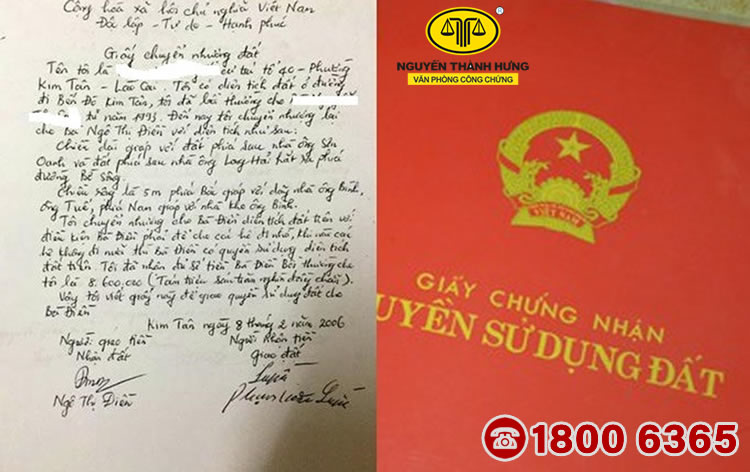 Cộng hoà xã hội chủ nghĩa Việt Nam
Độc lập - Tự do - Hạnh phúc
Giấy chuyển nhượng đất
Tên tôi là cư trú tổ 40 - Phường
Kim Tân - Lào Cai. Tôi có diện tích đất ở đường
đi Bến Đò Kim Tân, tôi đã bồi thường cho
từ năm 1993. Đến nay tôi chuyển nhượng lại
cho Bà Ngô Thị Điền với diện tích như sau:
Chiều dài giáp với đất phía sau nhà ông Sơn
Oanh và đất phía sau nhà ông Long Hải hắt ra phía
đường Bờ sông.
Chiều rộng là 5m phía Bắc giáp với dãy nhà ông Bình,
ông Tuế, phía Nam giáp với nhà kho ông Bình.
Tôi chuyển nhượng cho Bà Điền diện tích đất trên với
điều kiện Bà Điền phải để cho các hộ đi nhờ, khi nào các
hộ không đi nữa thì Bà Điền có quyền sử dụng diện tích
đất trên. Tôi đã nhận đủ số tiền Bà Điền Bồi thường cho
tôi là 8.600.000 (Tám triệu sáu trăm nghìn đồng chẵn).
Vậy tôi viết giấy này để giao quyền sử dụng đất cho
Bà Điền
Kim Tân ngày 8 tháng 2 năm 2006
Người giao tiền
Nhận đất
Người nhận tiền
giao đất
Ngô Thị Điền
NGUYỄN THÀNH HƯNG
VĂN PHÒNG CÔNG CHỨNG
VIỆT NAM
GIẤY CHỨNG NHẬN
UYỀN SỬ DỤNG ĐẤT
1800 6365